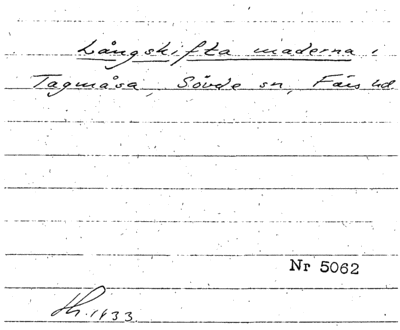 Långskifta maderna i
Tagmåsa, Sövde sn, Färs hd
Nr 5062
1933